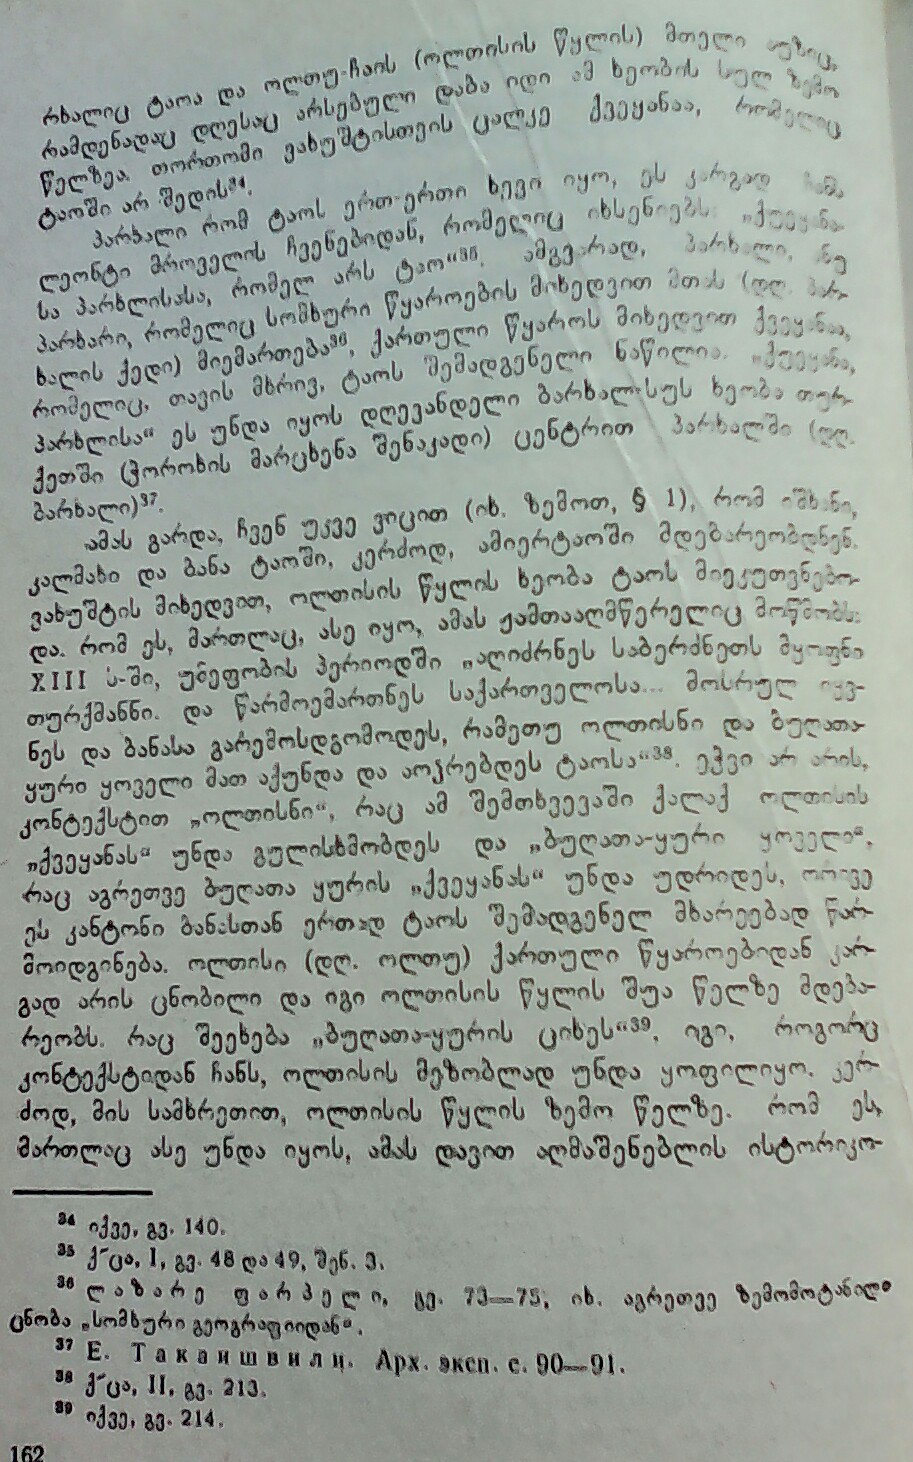 რხალიც ტაოა და ოლთუ-ჩაის (ოლთისის წყლის) მთელი აუზიც,
რამდენადაც დღესაც არსებული დაბა იდი ამ ხეობის სულ ზემო
წელზეა. თორთომი ვახუშტისთვის ცალკე ქვეყანაა, რომელიც
ტაოში არ შედის³⁴.
პარხალი რომ ტაოს ერთ-ერთი ხევი იყო, ეს კარგად ჩანს
ლეონტი მროველის ჩვენებიდან, რომელიც იხსენიებს: „ქუეყანა-
სა პარხლისასა, რომელ არს ტაო“³⁵. ამგვარად, პარხალი, ანუ
პარხარი, რომელიც სომხური წყაროების მიხედვით მთას (დღ. პარ-
ხალის ქედი) მიემართება³⁶, ქართული წყაროს მიხედვით ქვეყანაა,
რომელიც, თავის მხრივ, ტაოს შემადგენელი ნაწილია. „ქუეყანა,
პარხლისა“ ეს უნდა იყოს დღევანდელი ბარხალ-სუს ხეობა თურ-
ქეთში (ჭოროხის მარცხენა შენაკადი) ცენტრით პარხალში (დღ.
ბარხალი)³⁷.
ამას გარდა, ჩვენ უკვე ვიცით (იხ. ზემოთ, § 1), რომ იშხანი,
კალმახი და ბანა ტაოში, კერძოდ, ამიერტაოში მდებარეობდნენ.
ვახუშტის მიხედვით, ოლთისის წყლის ხეობა ტაოს მიეკუთვნებო-
და. რომ ეს, მართლაც, ასე იყო, ამას ჟამთააღმწერელიც მოწმობს:
XIII ს-ში, უმეფობის პერიოდში „აღიძრნეს საბერძნეთს მყოფნი
თურქმანნი. და წარმოემართნეს საქართველოსა... მოსრულ იყვ-
ნეს და ბანასა გარემოსდგომოდეს, რამეთუ ოლთისნი და ბუღათა-
ყური ყოველი მათ აქუნდა და აოჴრებდეს ტაოსა“³⁸. ეჭვი არ არის,
კონტექსტით „ოლთისნი“, რაც ამ შემთხვევაში ქალაქ ოლთისის
„ქვეყანას“ უნდა გულისხმობდეს და „ბუღათა-ყური ყოველი“,
რაც აგრეთვე ბუღათა ყურის „ქვეყანას“ უნდა უდრიდეს, ორივე
ეს კანტონი ბანასთან ერთად ტაოს შემადგენელ მხარეებად წარ-
მოიდგინება. ოლთისი (დღ. ოლთუ) ქართული წყაროებიდან კარ-
გად არის ცნობილი და იგი ოლთისის წყლის შუა წელზე მდება-
რეობს. რაც შეეხება „ბუღათა-ყურის ციხეს“³⁹, იგი, როგორც
კონტექსტიდან ჩანს, ოლთისის მეზობლად უნდა ყოფილიყო. კერ-
ძოდ, მის სამხრეთით, ოლთისის წყლის ზემო წელზე. რომ ეს,
მართლაც ასე უნდა იყოს, ამას დავით აღმაშენებლის ისტორიკო-
³⁴ იქვე, გვ. 140.
³⁵ ქ˜ცა, I, გვ. 48 და 49, შენ. 3.
³⁶ ლაზარე ფარპელი, გვ. 73—75, იხ. აგრეთვე ზემომოტანილი
ცნობა „სომხური გეოგრაფიიდან“.
³⁷ Е. Такаишвили. Арх. эксп. с. 90—91.
³⁸ ქ˜ცა, II, გვ. 213.
³⁹ იქვე, გვ. 214.
162